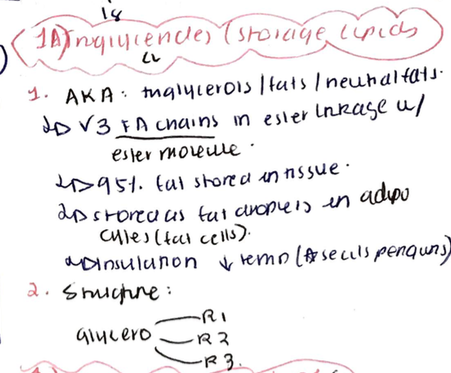 18
1A) Triglycerides (storage lipids
1. AKA: triglycerols / fats / neutral fats.
3 FA chains in ester linkage w/
ester molecule.
95% fat stored in tissue.
stored as fat droplets in adipo
cytes (fat cells).
insulation ↓ temp ( seals penguins)
2. Structure:
R1
glycero R2
R3.